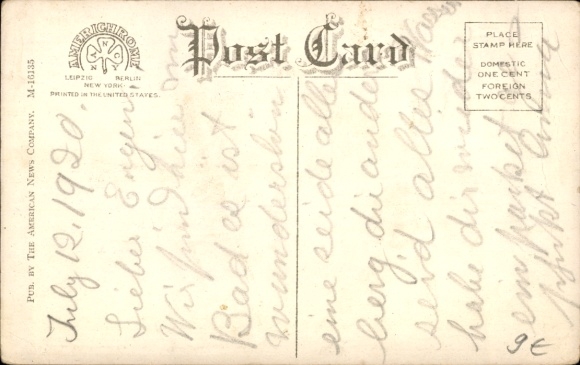 AMERICHROME
LEIPZIG BERLIN
NEW YORK
PRINTED IN THE UNITED STATES.
Post Card
PLACE
STAMP HERE
DOMESTIC
ONE CENT
FOREIGN
TWO CENTS
PUB. BY THE AMERICAN NEWS COMPANY. M-16135
July 12, 1920
Lieber Eugen
Wir sind hier im
Bad es ist
wunderschön
eine seide alle
berg die andere
seid alles
habe dir wider
ein packet
9€